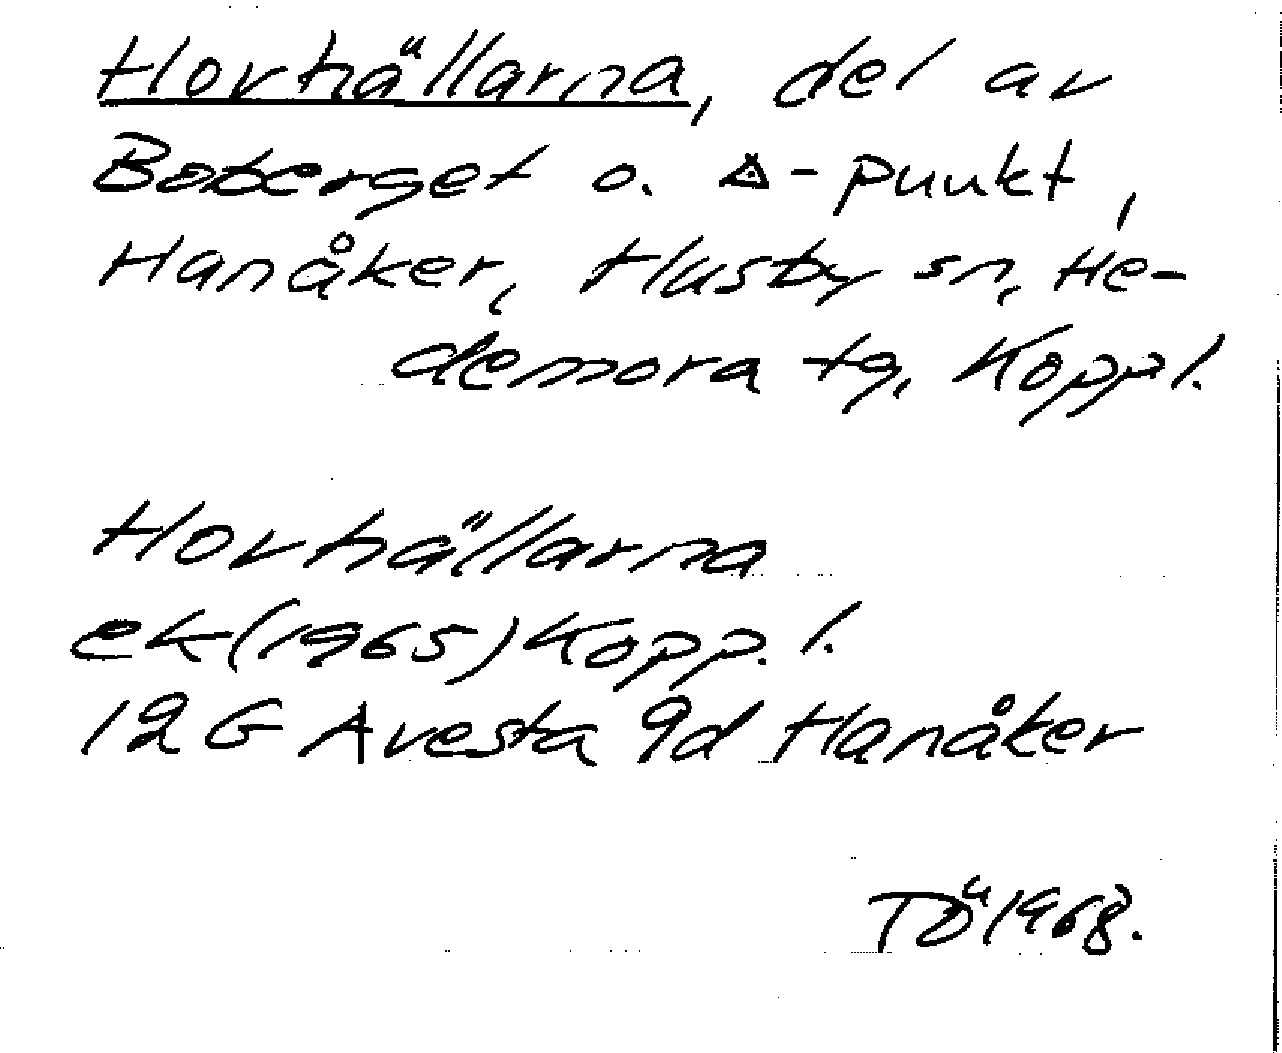 Hovhällarna, del av
Boberget o. △-punkt,
Hanåker, Husby sn, He-
demora tg, Koppl.
Hovhällarna
ek (1965) Kopp. l.
12 G Avesta 9d Hanåker
TÖ 1968.